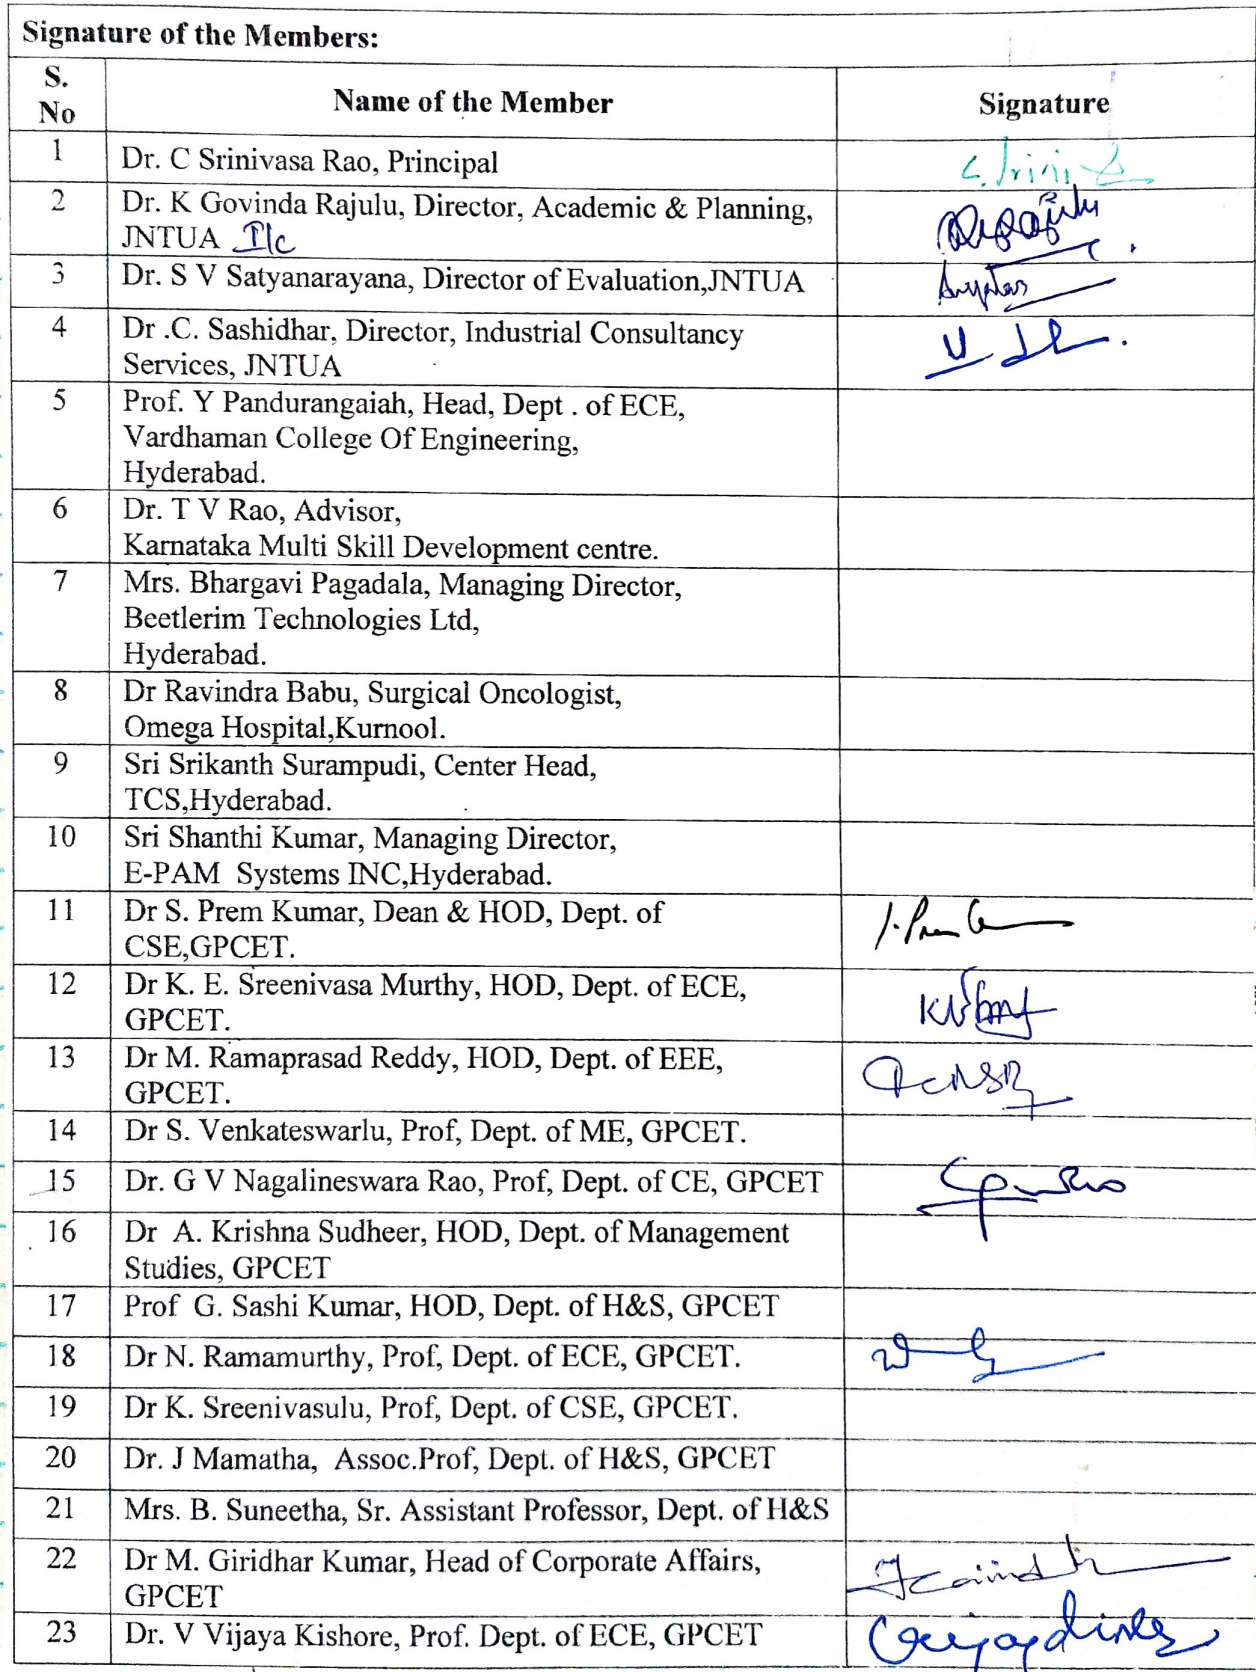 Signature of the Members:
S. No Name of the Member Signature
1 Dr. C Srinivasa Rao, Principal
2 Dr. K Govinda Rajulu, Director, Academic & Planning,
JNTUA I/c
3 Dr. S V Satyanarayana, Director of Evaluation,JNTUA
4 Dr .C. Sashidhar, Director, Industrial Consultancy
Services, JNTUA
5 Prof. Y Pandurangaiah, Head, Dept . of ECE,
Vardhaman College Of Engineering,
Hyderabad.
6 Dr. T V Rao, Advisor,
Karnataka Multi Skill Development centre.
7 Mrs. Bhargavi Pagadala, Managing Director,
Beetlerim Technologies Ltd,
Hyderabad.
8 Dr Ravindra Babu, Surgical Oncologist,
Omega Hospital,Kurnool.
9 Sri Srikanth Surampudi, Center Head,
TCS,Hyderabad.
10 Sri Shanthi Kumar, Managing Director,
E-PAM Systems INC,Hyderabad.
11 Dr S. Prem Kumar, Dean & HOD, Dept. of
CSE,GPCET.
12 Dr K. E. Sreenivasa Murthy, HOD, Dept. of ECE,
GPCET.
13 Dr M. Ramaprasad Reddy, HOD, Dept. of EEE,
GPCET.
14 Dr S. Venkateswarlu, Prof, Dept. of ME, GPCET.
15 Dr. G V Nagalineswara Rao, Prof, Dept. of CE, GPCET
16 Dr A. Krishna Sudheer, HOD, Dept. of Management
Studies, GPCET
17 Prof G. Sashi Kumar, HOD, Dept. of H&S, GPCET
18 Dr N. Ramamurthy, Prof, Dept. of ECE, GPCET.
19 Dr K. Sreenivasulu, Prof, Dept. of CSE, GPCET.
20 Dr. J Mamatha, Assoc.Prof, Dept. of H&S, GPCET
21 Mrs. B. Suneetha, Sr. Assistant Professor, Dept. of H&S
22 Dr M. Giridhar Kumar, Head of Corporate Affairs,
GPCET
23 Dr. V Vijaya Kishore, Prof. Dept. of ECE, GPCET